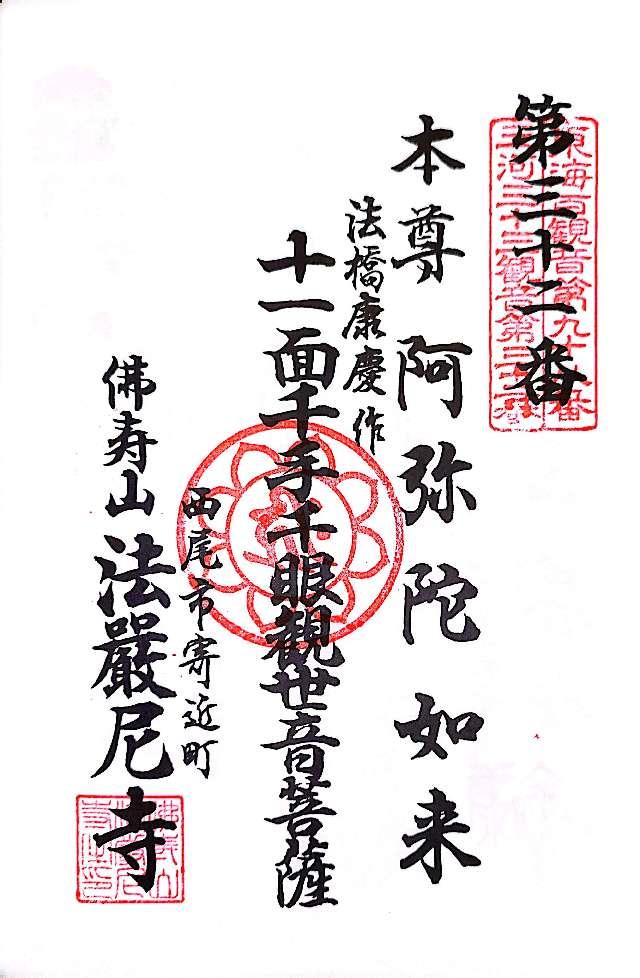 第三十二番
東海百観音第九十番
三河三十三観音第三十二番
本尊 阿弥陀如来
法橋康慶作
十一面千手千眼観世音菩薩
西尾市寄近町
佛寿山 法嚴尼寺